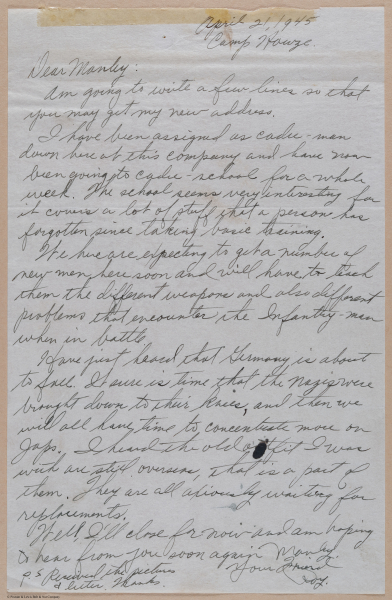 April 2, 1945
Camp Howze
Dear Manley:
Am going to write a few lines so that
you may get my new address.
I have been assigned as cadre-man
down here at this company and have now
been going to cadre-school for a whole
week. The school seems very interesting for
it covers a lot of stuff that a person has
forgotten since taking basic training.
We here are expecting to get a number of
new men here soon and will have to teach
them the different weapons and also different
problems that encounter the Infantry-man
when in battle.
I have just heard that Germany is about
to fall. It sure is time that the Nazis were
brought down to their knees, and then we
will all have time to concentrate more on
Japs. I heard the old outfit I was
with are still overseas, that is a part of
them. They are all obviously waiting for
replacements.
Well I'll close for now and am hoping
to hear from you soon again Manley.
Your Friend
Roy.
PS Received the pictures
& letter. Thanks.